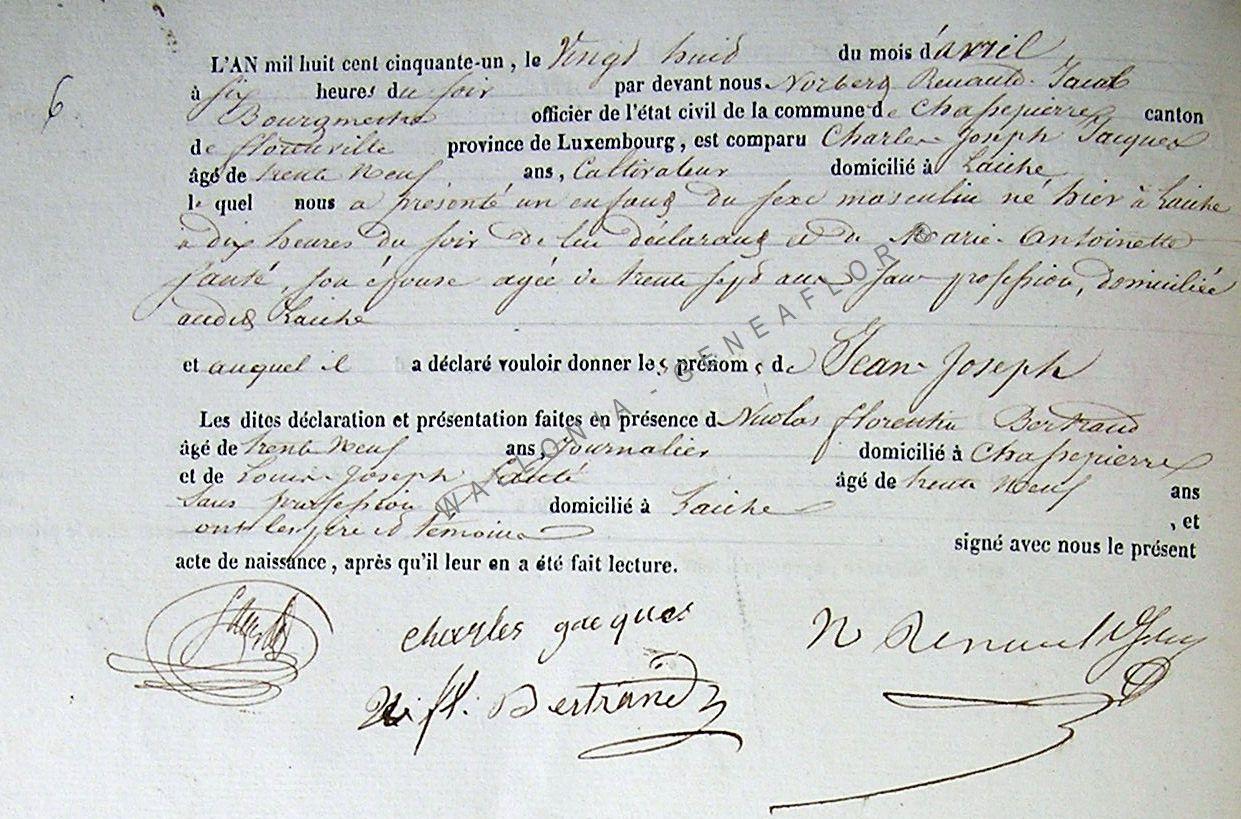 L'AN mil huit cent cinquante-un, le Vingt huit du mois d'avril
6
à six heures du soir par devant nous Norbert Renauld-
Bourgmestre officier de l'état civil de la commune de Chassepierre canton
de florenville province de Luxembourg, est comparu Charles Joseph Jacques
âgé de trente Neuf ans, Cultivateur domicilié à Laiche
le quel nous a présenté un enfant du sexe masculin né hier à Laiche
à dix heures du soir de lui déclarant et de Marie-Antoinette
son épouse agée de trente sept ans sans profession, domiciliée
audit Laiche
et auquel il a déclaré vouloir donner les prénoms de Jean-Joseph
Les dites déclaration et présentation faites en présence d Nicolas florentin Bertrand
âgé de trente Neuf ans, Journalier domicilié à Chassepierre
et de Louis-Joseph âgé de trente Neuf ans
Sans profession domicilié à Laiche , et
ont les père et témoins signé avec nous le présent
acte de naissance, après qu'il leur en a été fait lecture.
charles jacques
N Renauld
Ni. fl. Bertrand
WALLONIA - GENEAFLOR